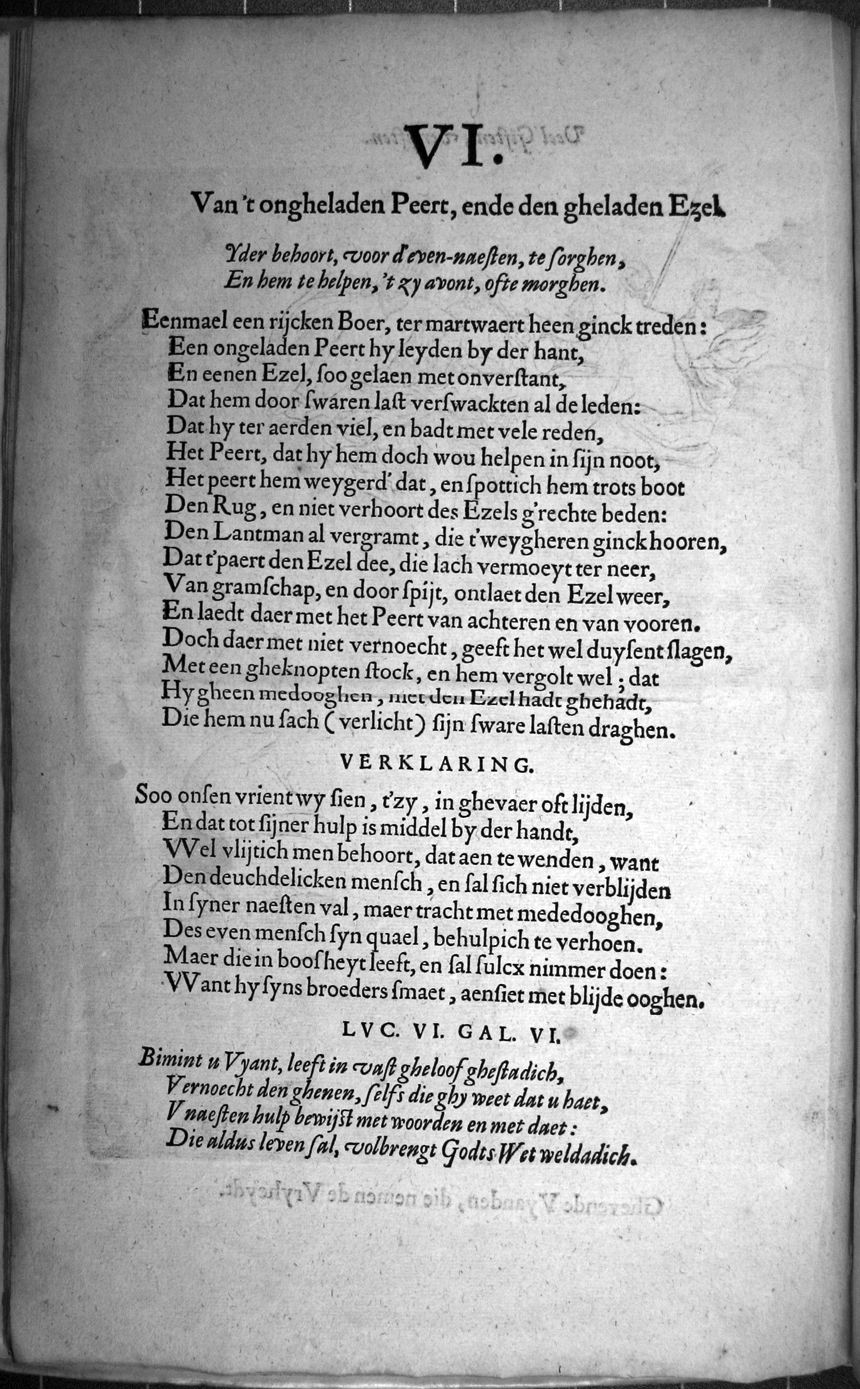 VI.
Van 't ongheladen Peert, ende den gheladen Ezel.
Yder behoort, voor d'even-naeſten, te ſorghen,
En hem te helpen, 't zy avont, ofte morghen.
Eenmael een rijcken Boer, ter martwaert heen ginck treden:
Een ongeladen Peert hy leyden by der hant,
En eenen Ezel, ſoo gelaen met onverſtant,
Dat hem door ſwaren laſt verſwackten al de leden:
Dat hy ter aerden viel, en badt met vele reden,
Het Peert, dat hy hem doch wou helpen in ſijn noot,
Het peert hem weygerd' dat, en ſpottich hem trots boot
Den Rug, en niet verhoort des Ezels g'rechte beden:
Den Lantman al vergramt, die t'weygheren ginck hooren,
Dat t'paert den Ezel dee, die lach vermoeyt ter neer,
Van gramſchap, en door ſpijt, ontlaet den Ezel weer,
En laedt daer met het Peert van achteren en van vooren.
Doch daer met niet vernoecht, geeft het wel duyſent ſlagen,
Met een gheknopten ſtock, en hem vergolt wel; dat
Hy gheen medooghen, met den Ezel hadt ghehadt,
Die hem nu ſach (verlicht) ſijn ſware laſten draghen.
VERKLARING.
Soo onſen vrient wy ſien, t'zy, in ghevaer oft lijden,
En dat tot ſijner hulp is middel by der handt,
VVel vlijtich men behoort, dat aen te wenden, want
Den deuchdelicken menſch, en ſal ſich niet verblijden
In ſyner naeſten val, maer tracht met mededooghen,
Des even menſch ſyn quael, behulpich te verhoen.
Maer die in booſheyt leeft, en ſal ſulcx nimmer doen:
VVant hy ſyns broeders ſmaet, aenſiet met blijde ooghen.
LVC. VI. GAL. VI.
Bimint u Vyant, leeft in vaſt gheloof gheſtadich,
Vernoecht den ghenen, ſelfs die ghy weet dat u haet,
V naeſten hulp bewijſt met woorden en met daet:
Die aldus leven ſal, volbrengt Godts Wet weldadich.